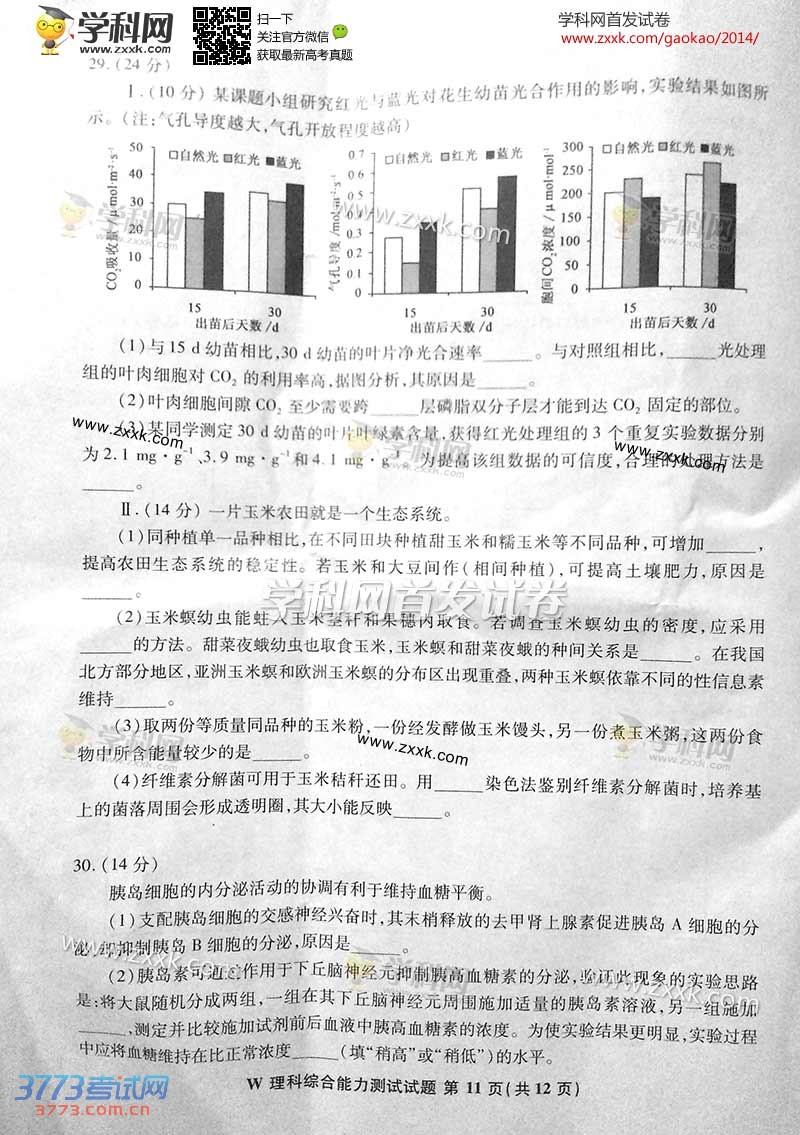 学科网
www.zxxk.com
扫一下
关注官方微信
获取最新高考真题
学科网首发试卷
www.zxxk.com/gaokao/2014/
29.(24 分)
Ⅰ.(10 分) 某课题小组研究红光与蓝光对花生幼苗光合作用的影响,实验结果如图所
示。(注:气孔导度越大,气孔开放程度越高)
CO₂吸收量/ μmol·m⁻²·s⁻¹
50
40
30
20
10
0
□自然光 红光 蓝光
15 30
出苗后天数 /d
气孔导度 /mol·m⁻²·s⁻¹
0.7
0.6
0.5
0.4
0.3
0.2
0.1
0
□自然光 红光 蓝光
15 30
出苗后天数 /d
胞间CO₂浓度 / μmol·mol⁻¹
300
250
200
150
100
50
0
□自然光 红光 蓝光
15 30
出苗后天数 /d
学科网
zxxk.com
www.zxxk.com
学科网
zxxk.com
(1)与 15 d 幼苗相比,30 d 幼苗的叶片净光合速率______。与对照组相比,______光处理
组的叶肉细胞对 CO₂ 的利用率高,据图分析,其原因是______。
(2)叶肉细胞间隙 CO₂ 至少需要跨______层磷脂双分子层才能到达 CO₂ 固定的部位。
(3)某同学测定 30 d 幼苗的叶片叶绿素含量,获得红光处理组的 3 个重复实验数据分别
www.zxxk.com
为 2.1 mg·g⁻¹、3.9 mg·g⁻¹和 4.1 mg·g⁻¹。为提高该组数据的可信度,合理的处理方法是
www.zxxk.com
______。
Ⅱ.(14 分) 一片玉米农田就是一个生态系统。
(1)同种植单一品种相比,在不同田块种植甜玉米和糯玉米等不同品种,可增加______,
提高农田生态系统的稳定性。若玉米和大豆间作(相间种植),可提高土壤肥力,原因是
______。
学科网首发试卷
(2)玉米螟幼虫能蛀入玉米茎秆和果穗内取食。若调查玉米螟幼虫的密度,应采用
______的方法。甜菜夜蛾幼虫也取食玉米,玉米螟和甜菜夜蛾的种间关系是______。在我国
北方部分地区,亚洲玉米螟和欧洲玉米螟的分布区出现重叠,两种玉米螟依靠不同的性信息素
维持______。
学科网
zxxk.com
学科网
zxxk.com
(3)取两份等质量同品种的玉米粉,一份经发酵做玉米馒头,另一份煮玉米粥,这两份食
物中所含能量较少的是______。
www.zxxk.com
(4)纤维素分解菌可用于玉米秸秆还田。用______染色法鉴别纤维素分解菌时,培养基
上的菌落周围会形成透明圈,其大小能反映______。
30.(14 分)
胰岛细胞的内分泌活动的协调有利于维持血糖平衡。
(1)支配胰岛细胞的交感神经兴奋时,其末梢释放的去甲肾上腺素促进胰岛 A 细胞的分
泌,却抑制胰岛 B 细胞的分泌,原因是______。
www.zxxk.com
www.zxxk.com
(2)胰岛素可通过作用于下丘脑神经元抑制胰高血糖素的分泌,验证此现象的实验思路
是:将大鼠随机分成两组,一组在其下丘脑神经元周围施加适量的胰岛素溶液,另一组施加
______,测定并比较施加试剂前后血液中胰高血糖素的浓度。为使实验结果更明显,实验过程
中应将血糖维持在比正常浓度______(填“稍高”或“稍低”)的水平。
W 理科综合能力测试试题 第 11 页(共 12 页)
3773考试网
3773.com.cn